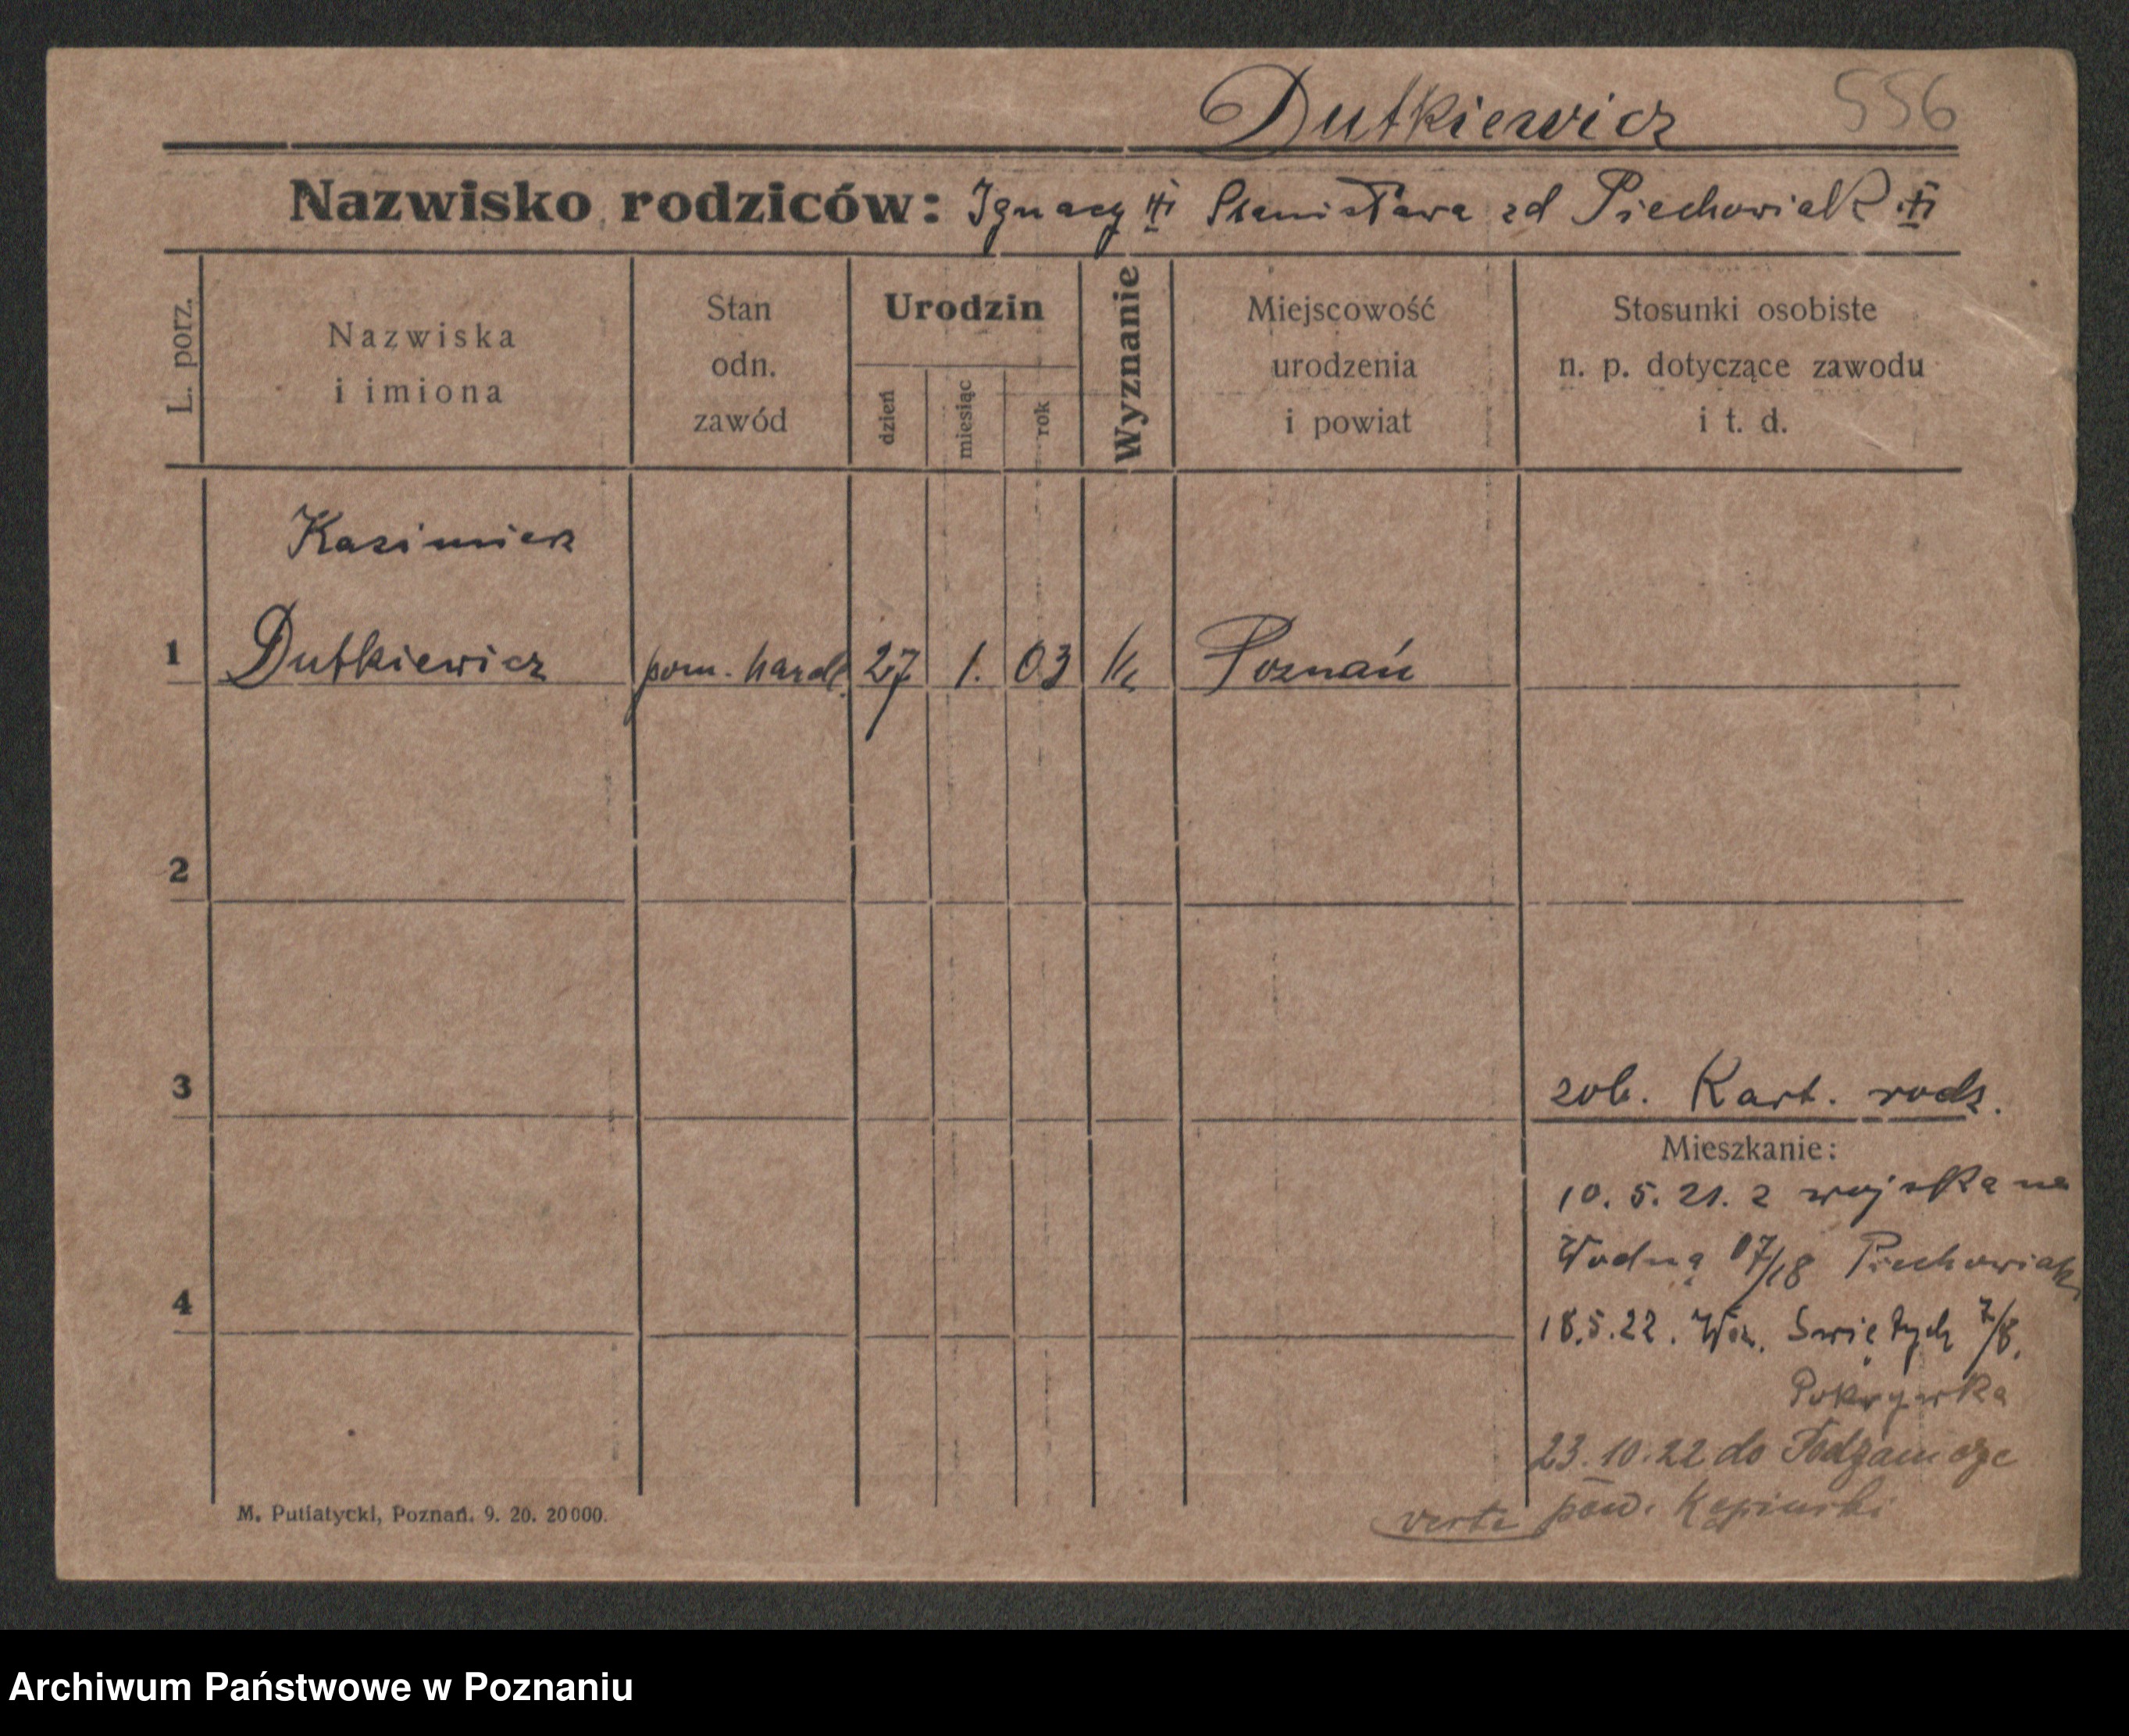 Dutkiewicz 556
Nazwisko rodziców: Ignacy Stanisława zd Piechowiak
L. porz.
Nazwiska
i imiona
Stan
odn.
zawód
Urodzin
dzień
miesiąc
rok
Wyznanie
Miejscowość
urodzenia
i powiat
Stosunki osobiste
n. p. dotyczące zawodu
i t. d.
Kazimierz
1 Dutkiewicz pom. handl. 27 1. 03 k Poznań
2
3
zob. Kart. rodz.
Mieszkanie:
10. 5. 21. z wojska na
Wodną 07/18 Piechowiak
4
18.5.22. Wsz. Świętych 7/8.
23.10.22 do Podzamcze
verte pow. Kępiński
M. Putiatycki, Poznań. 9. 20. 20000.
Archiwum Państwowe w Poznaniu